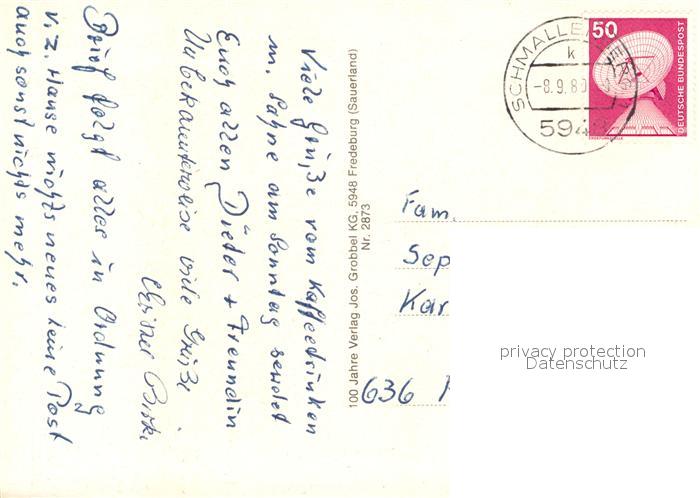 Viele Grüße vom Kaffeetrinken
m. Sahne am Sonntag sendet
Euch allen Dieter + Freundin
Unbekannterweise viele Grüße
Brief folgt alles in Ordnung
v. z. Hause nichts neues keine Post
auch sonst nichts mehr.
100 Jahre Verlag Jos. Grobbel KG, 5948 Fredeburg (Sauerland)
Nr. 2873
SCHMALLE
k
-8.9.80
594
50
DEUTSCHE BUNDESPOST
Fam.
Sep
Kar
636
privacy protection
Datenschutz